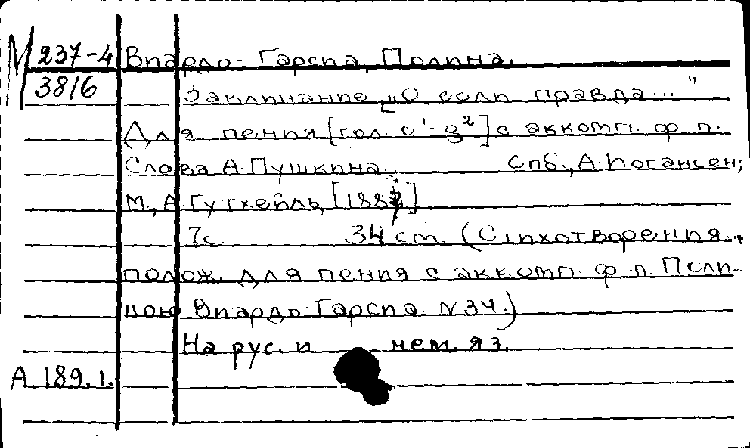 М 237-4 Виардо-Гарсиа, Полина.
3816
Заклинание „О если правда..."
Для пения [гол. c¹-g²] с аккомп. ф.п.
Слова А. Пушкина. Спб., А. Иогансен;
М., А. Гутхейль, [188 ]
7с. 34 cm. (Стихотворения,
полож. для пения с аккомп. ф.п. Поли-
ною Виардо-Гарсиа. N 34.)
На рус. и нем. яз.
А 189.1.